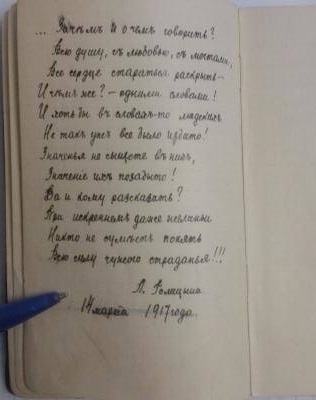 ... Зачѣмъ и о чемъ говорить?
Всю душу, съ любовью, съ мечтами,
Все сердце стараться раскрыть –
И чѣмъ же? – одними словами!
И хоть бы въ словахъ-то людскихъ
Не такъ ужъ все было избито!
Значенья не сыщете въ нихъ,
Значеніе ихъ позабыто!
Да и кому разсказать?
При искреннемъ даже желаньи
Никто не сумѣетъ понять
Всю силу чужого страданья!!!
Л.
14 марта 1917 года.